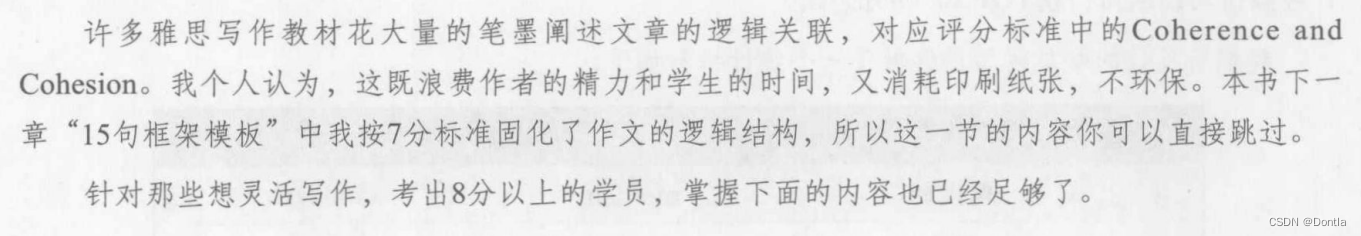 许多雅思写作教材花大量的笔墨阐述文章的逻辑关联，对应评分标准中的Coherence and
Cohesion。我个人认为，这既浪费作者的精力和学生的时间，又消耗印刷纸张，不环保。本书下一
章“15句框架模板”中我按7分标准固化了作文的逻辑结构，所以这一节的内容你可以直接跳过。
针对那些想灵活写作，考出8分以上的学员，掌握下面的内容也已经足够了。
CSDN @Dontla